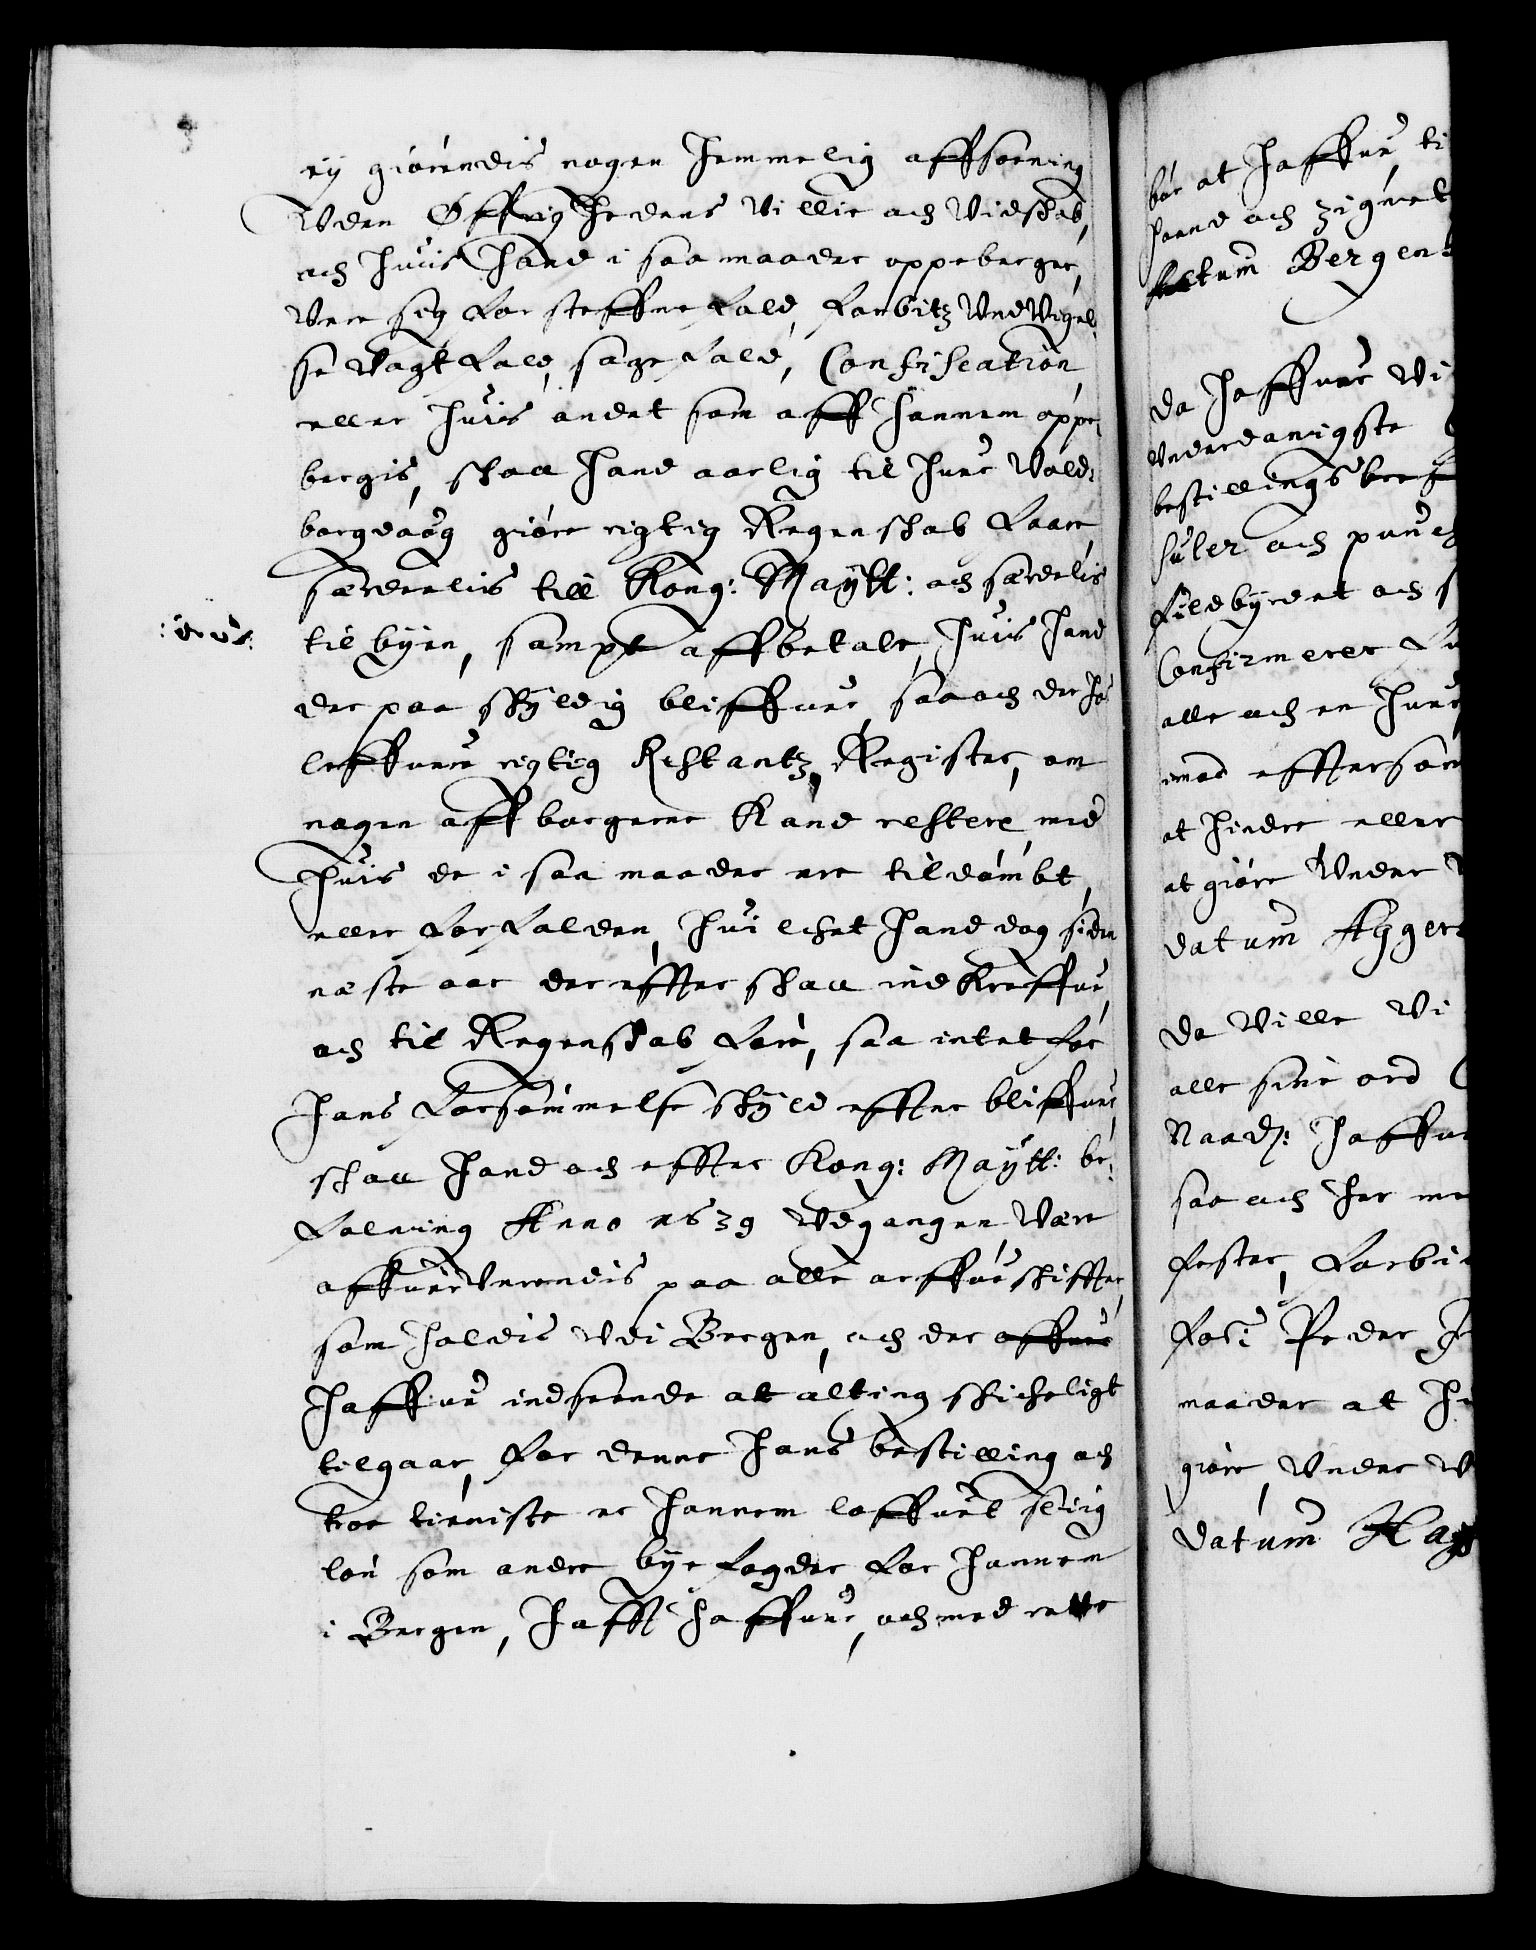 eÿ giörendis nogen hemmelig affsoening
Uden Øffrighedens villie och vidschab,
och huis hand i saa maader oppeberger,
Vere sig for steffnefald, forbitz Und Vigel,
se Vagtfald, sagefald, Confiscation
eller huis andet som aff hannem oppe,
bergis, schall hand aarlig til huer Vold:
borgdaög giöre rigtig Regenschab faare,
særdeelis till Kong: Maÿtt: och særdelis
til byen, sampt affbetale, huis hand
der paa schÿldig bliffuer, saa och der hos
leffuere rigtig Restantz Register, om
nogen aff borgerne Kand restere med
huis de i saa maader ere tildömbt,
eller forfalden, huilchet hand dog siden
neste aar der effter schall indkreffue,
och til Regenschab före, saa intet for
hans forsömmelse schÿld effter bliffuer,
schall hand och effter Kong: Maÿtt: be:
falning Anno 1639 Udgangen Være
offuerVerendis paa alle arffueschiffter,
som holdis Udi Bergen, och der offuer
haffue indseende at alting schicheligt
tilgaar, for denne hans bestilling och
troe tieniste er hannem loffuet sliig
lön som andre bye fogder for hannem
i Bergen, hafft haffuer, och med rette
bör at haffue, ti
haand och Zignet
Actum Bergen
da haffuer Vi
Underdanigste
bestillings bref
suler och punc
fuldbyrdet och s
Confirmerer
alle och en huer
imod effterson
at hindre eller
at giöre Under
datum Aggers
da Ville Vi
alle sine ord
Naad: haffue
saa och her me
fester, forbi
for: Peder
maader at hi
giöre, Under V
datum Hag